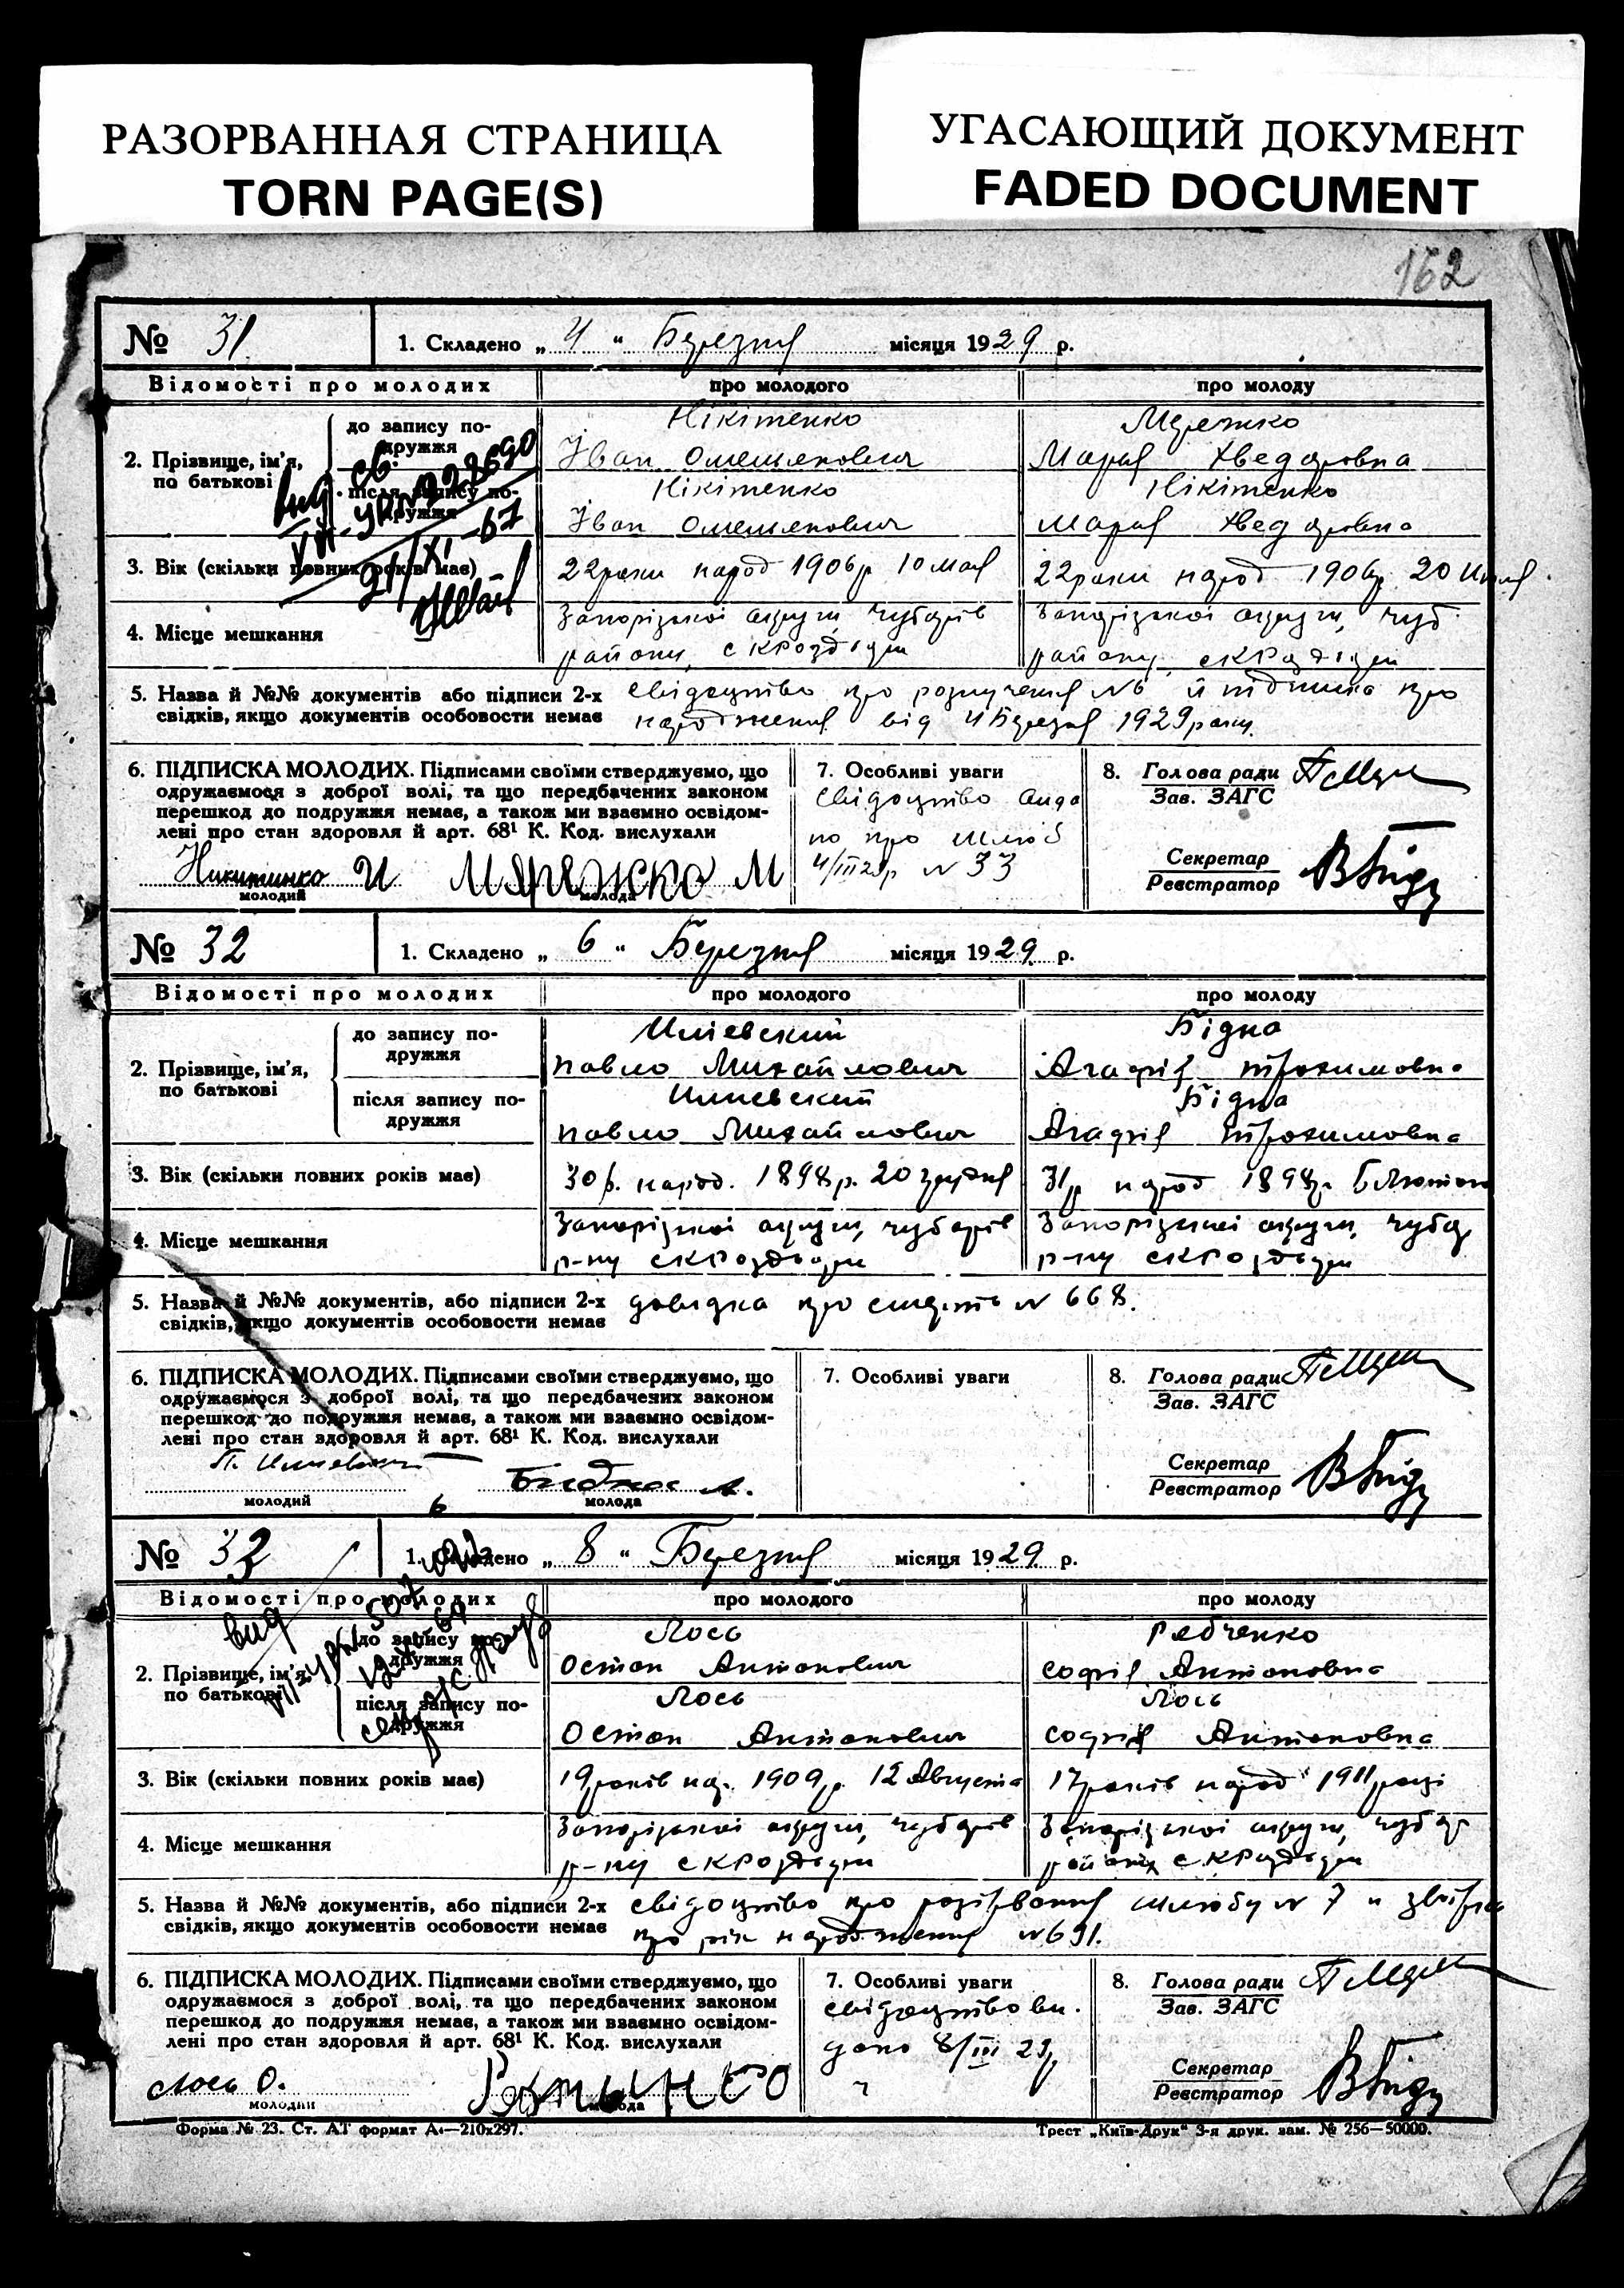 РАЗОРВАННАЯ СТРАНИЦА
TORN PAGE(S)
УГАСАЮЩИЙ ДОКУМЕНТ
FADED DOCUMENT
162
№ 31 1. Складено „ 4 “ Березня місяця 1929 р.
Відомості про молодих про молодого про молоду
2. Прізвище, ім'я, по батькові
до запису подружжя
Нікітенко
Іван Омелянович
Мережко
Марія Хведоровна
після запису подружжя
Нікітенко
Іван Омелянович
Нікітенко
Марія Хведоровна
3. Вік (скільки повних років має) 22 роки народ 1906 р 10 мая 22 роки народ 1906 р. 20
4. Місце мешкання
Запорізької округи, Чубарів
району, с КРоздори
Запорізької округи, Чуб.
району, с КРоздори
5. Назва й №№ документів або підписи 2-х свідоцтво про розлучення №6 й підписка про
свідків, якщо документів особовости немає народження від 4 Березня 1929 року.
6. ПІДПИСКА МОЛОДИХ. Підписами своїми стверджуємо, що
одружаємося з доброї волі, та що передбачених законом
перешкод до подружжя немає, а також ми взаємно освідом-
лені про стан здоровля й арт. 68¹ К. Код. вислухали
Никитинко И Мярежко М
молодий молода
7. Особливі уваги
Свідоцтво вида
но про шлюб
4/III 29 р N 33
8. Голова ради
Зав. ЗАГС
Секретар
Реєстратор
№ 32 1. Складено „ 6 “ Березня місяця 1929 р.
Відомості про молодих про молодого про молоду
2. Прізвище, ім'я, по батькові
до запису подружжя
Илієвский
Павло Михайлович
Бідна
Агафія Трохимовна
після запису подружжя
Илиевский
Павло Михайлович
Бідна
Агафія Трохимовна
3. Вік (скільки повних років має) 30 р. народ. 1898 р. 20 грудня 31 р народ 1898 р.
4. Місце мешкання
Запорізької округи, Чубарів
р-ну с КРоздори
Запорізької округи, Чубар
р-ну с КРоздори
5. Назва й №№ документів, або підписи 2-х довідка про смерть N 668.
свідків, якщо документів особовости немає
6. ПІДПИСКА МОЛОДИХ. Підписами своїми стверджуємо, що
одружаємося з доброї волі, та що передбачених законом
перешкод до подружжя немає, а також ми взаємно освідом-
лені про стан здоровля й арт. 68¹ К. Код. вислухали
Бидная А.
молодий молода
7. Особливі уваги
8. Голова ради
Зав. ЗАГС
Секретар
Реєстратор
№ 33 1. Складено „ 8 “ Березня місяця 1929 р.
Відомості про молодих про молодого про молоду
2. Прізвище, ім'я, по батькові
до запису подружжя
Лось
Остап Антонович
Рябченко
Софія Антоновна
після запису подружжя
Лось
Остап Антонович
Лось
Софія Антоновна
3. Вік (скільки повних років має) 19 років на. 1909 р. 12 Августа 17 років народ 1911 році
4. Місце мешкання
Запорізької округи, Чубарів
р-ну с КРоздори
Запорізької округи, Чубар
району с КРоздори
5. Назва й №№ документів, або підписи 2-х свідоцтво про розірвання шлюбу N 7 и
свідків, якщо документів особовости немає про рік народження N 691.
6. ПІДПИСКА МОЛОДИХ. Підписами своїми стверджуємо, що
одружаємося з доброї волі, та що передбачених законом
перешкод до подружжя немає, а також ми взаємно освідом-
лені про стан здоровля й арт. 68¹ К. Код. вислухали
Лось О.
молодий молода
7. Особливі уваги
свідоцтво ви.
дано 8/III 29 р
8. Голова ради
Зав. ЗАГС
Секретар
Реєстратор
Форма № 23. Ст. АТ формат А4—210х297. Трест „Київ-Друк“ 3-я друк. зам. № 256—50000.